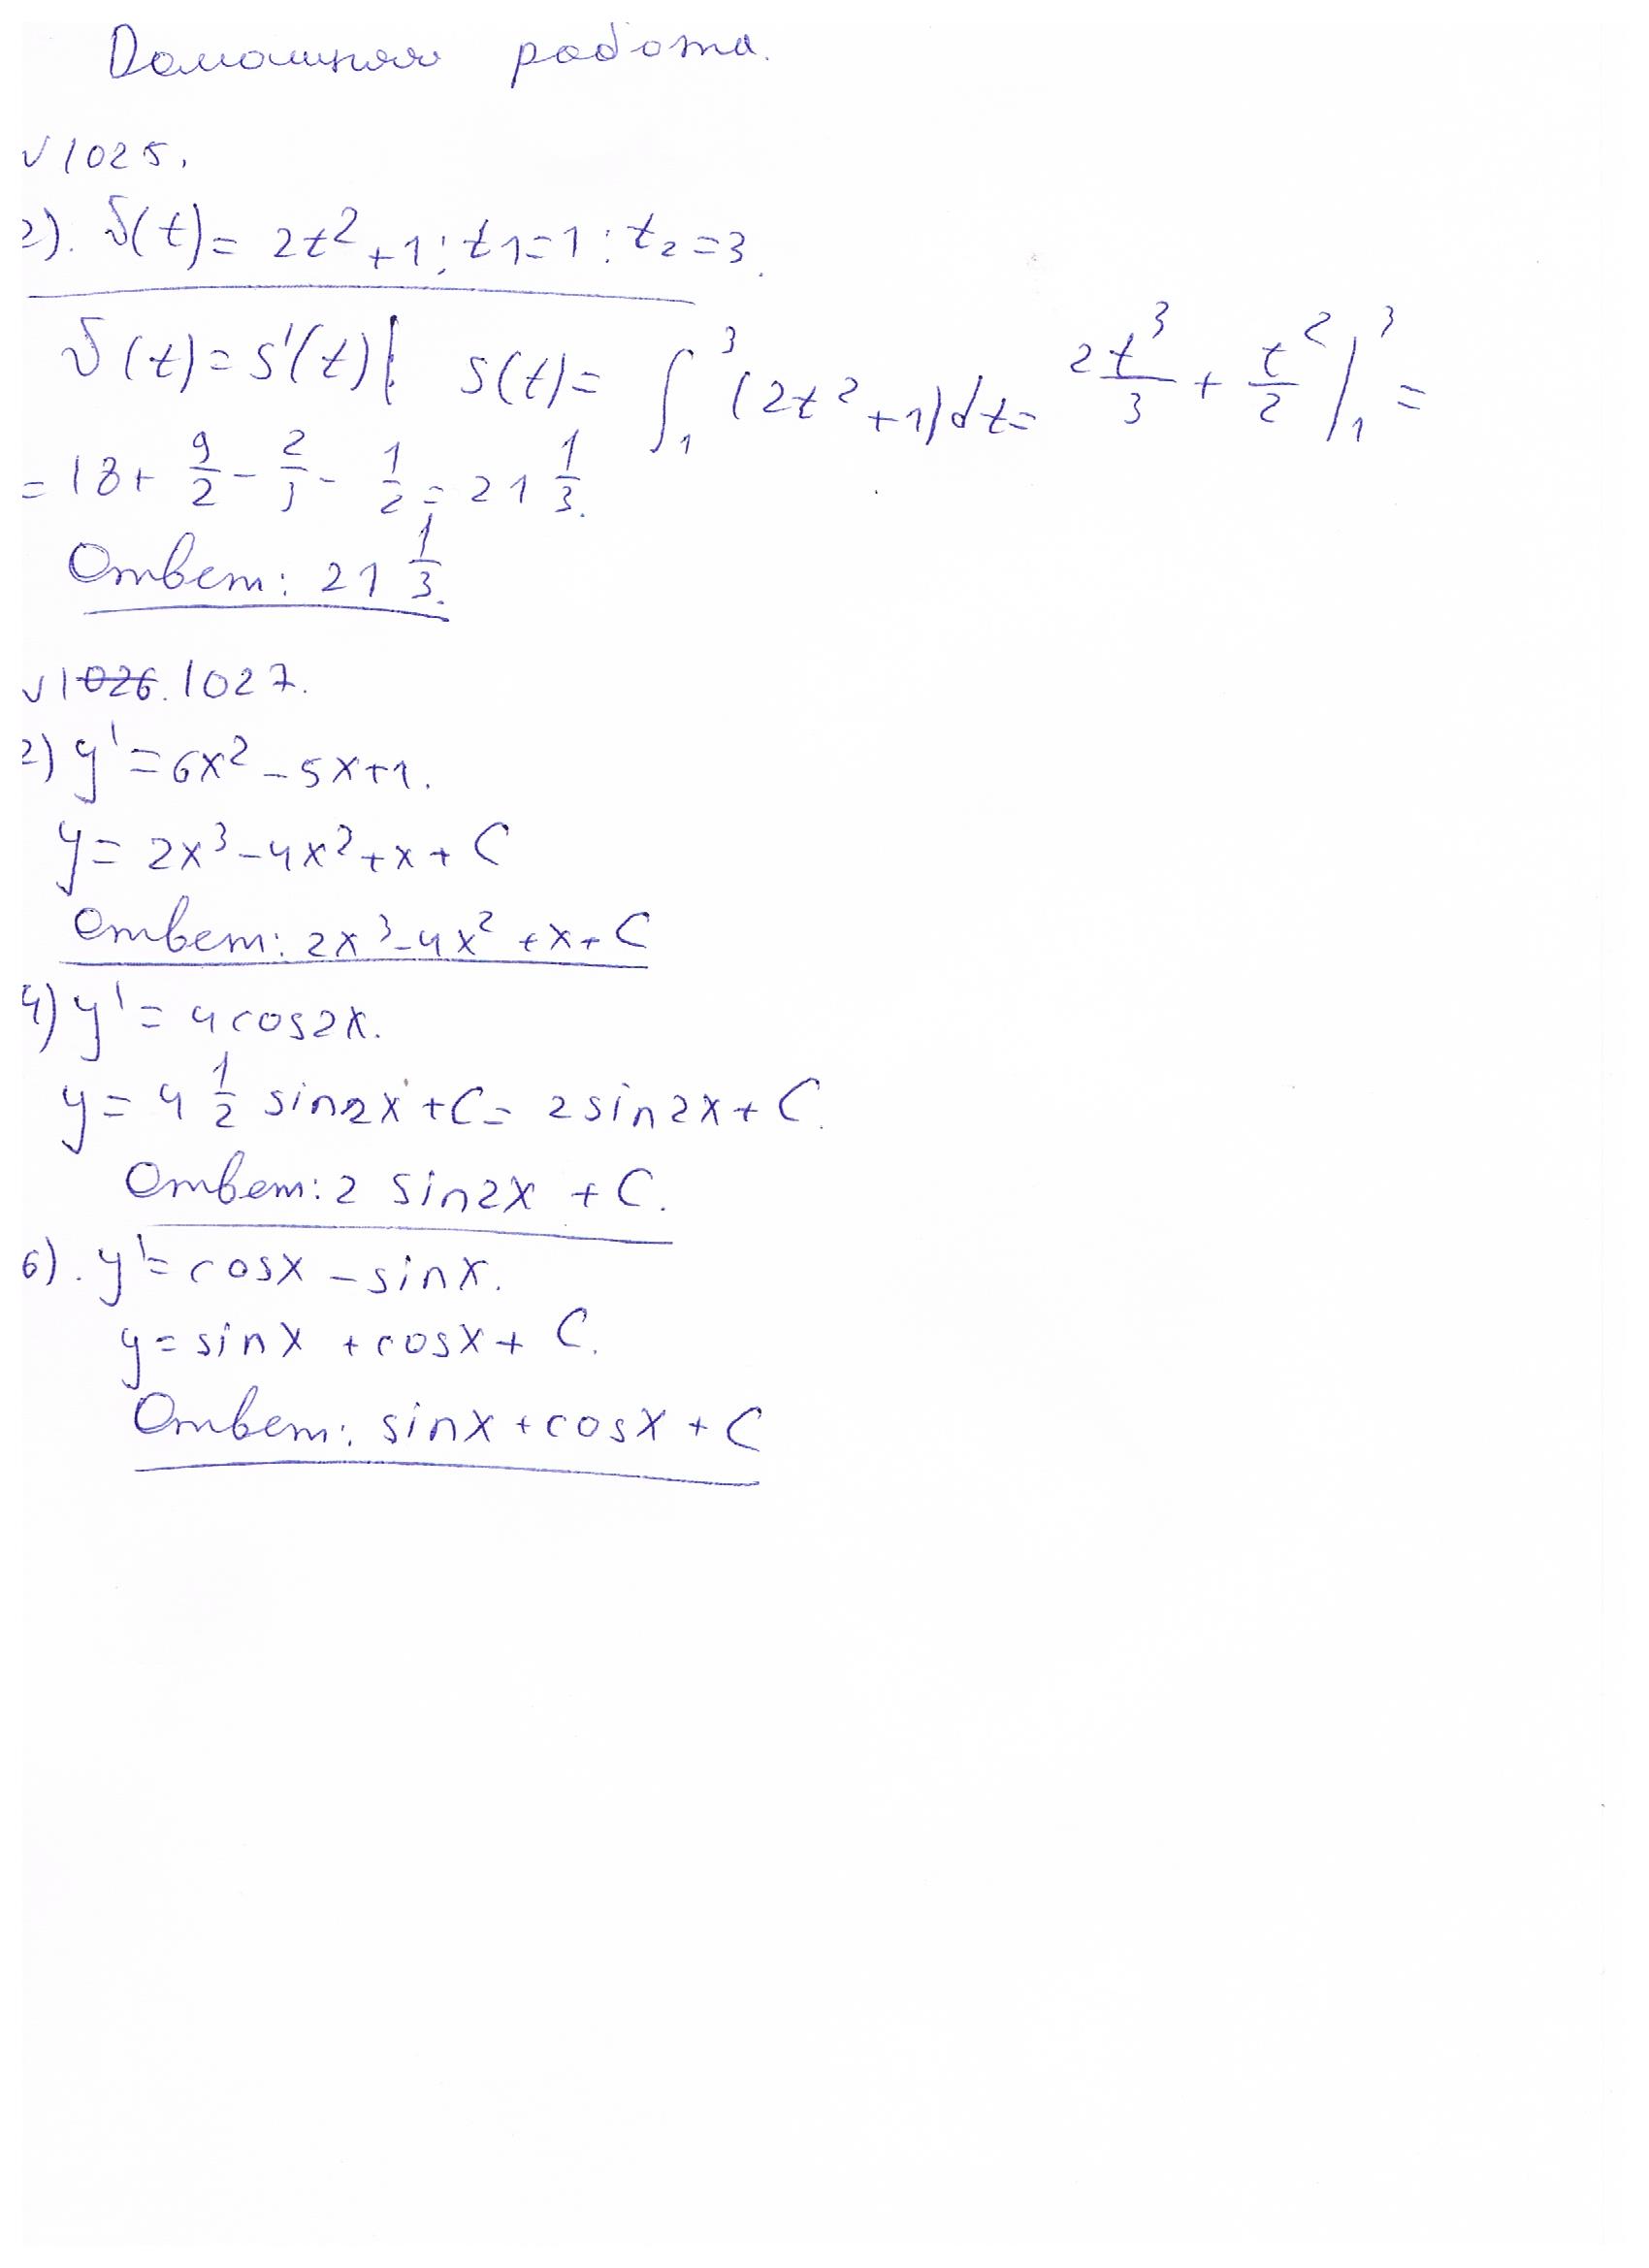 Домашняя работа.
√1025.
2). v(t) = 2t² + 1; t1 = 1; t₂ = 3.
v(t) = s'(t) | s(t) = ∫₁³ (2t² + 1)dt = 2t³/3 + t²/2 |₁³ =
= 18 + 9/2 - 2/3 - 1/2 = 21 1/3.
Ответ: 21 1/3.
√1026. 1027.
2) y' = 6x² - 5x + 1.
y = 2x³ - 4x² + x + C
Ответ: 2x³ - 4x² + x + C
4) y' = 4cos2x.
y = 4 1/2 sin2x + C = 2sin2x + C.
Ответ: 2 sin2x + C.
6). y' = cosx - sinx.
y = sinx + cosx + C.
Ответ: sinx + cosx + C